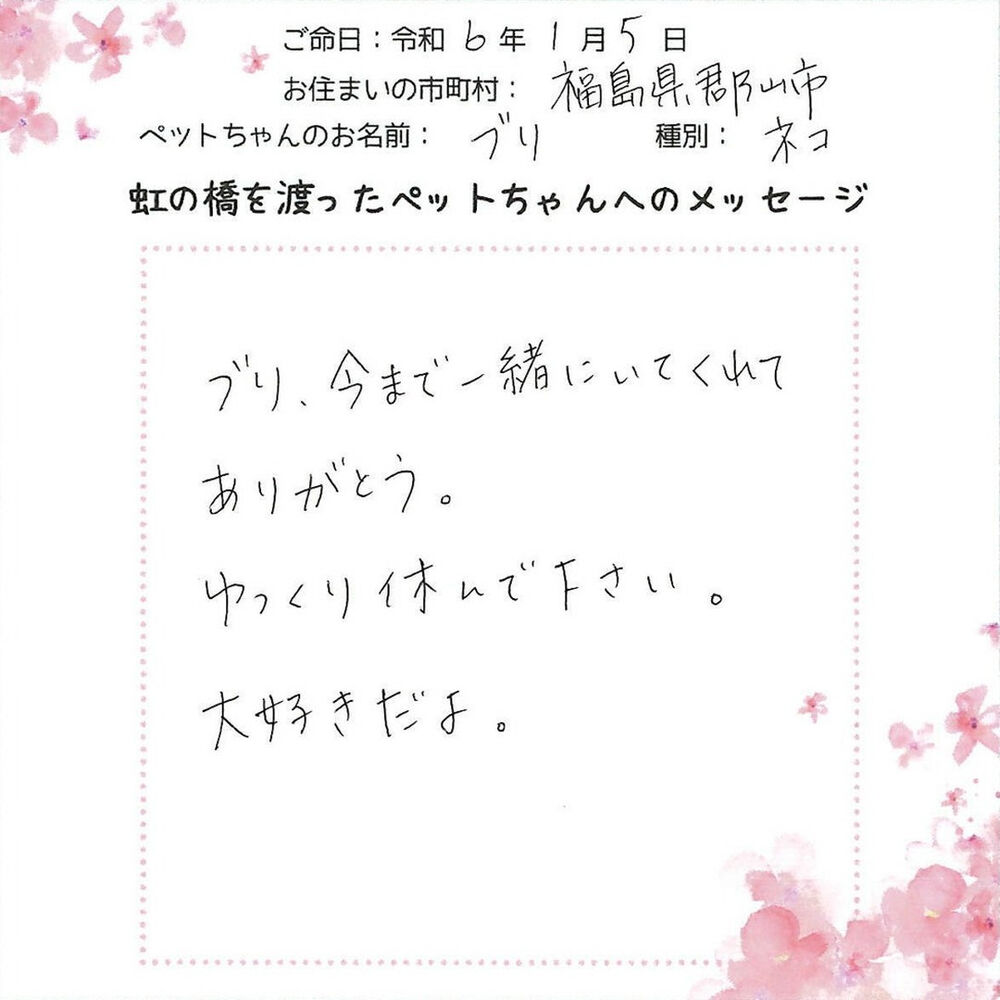 ご命日：令和 6 年 1 月 5 日
お住まいの市町村： 福島県郡山市
ペットちゃんのお名前： ブリ 種別： ネコ
虹の橋を渡ったペットちゃんへのメッセージ
ブリ、今まで一緒にいてくれて
ありがとう。
ゆっくり休んで下さい。
大好きだよ。